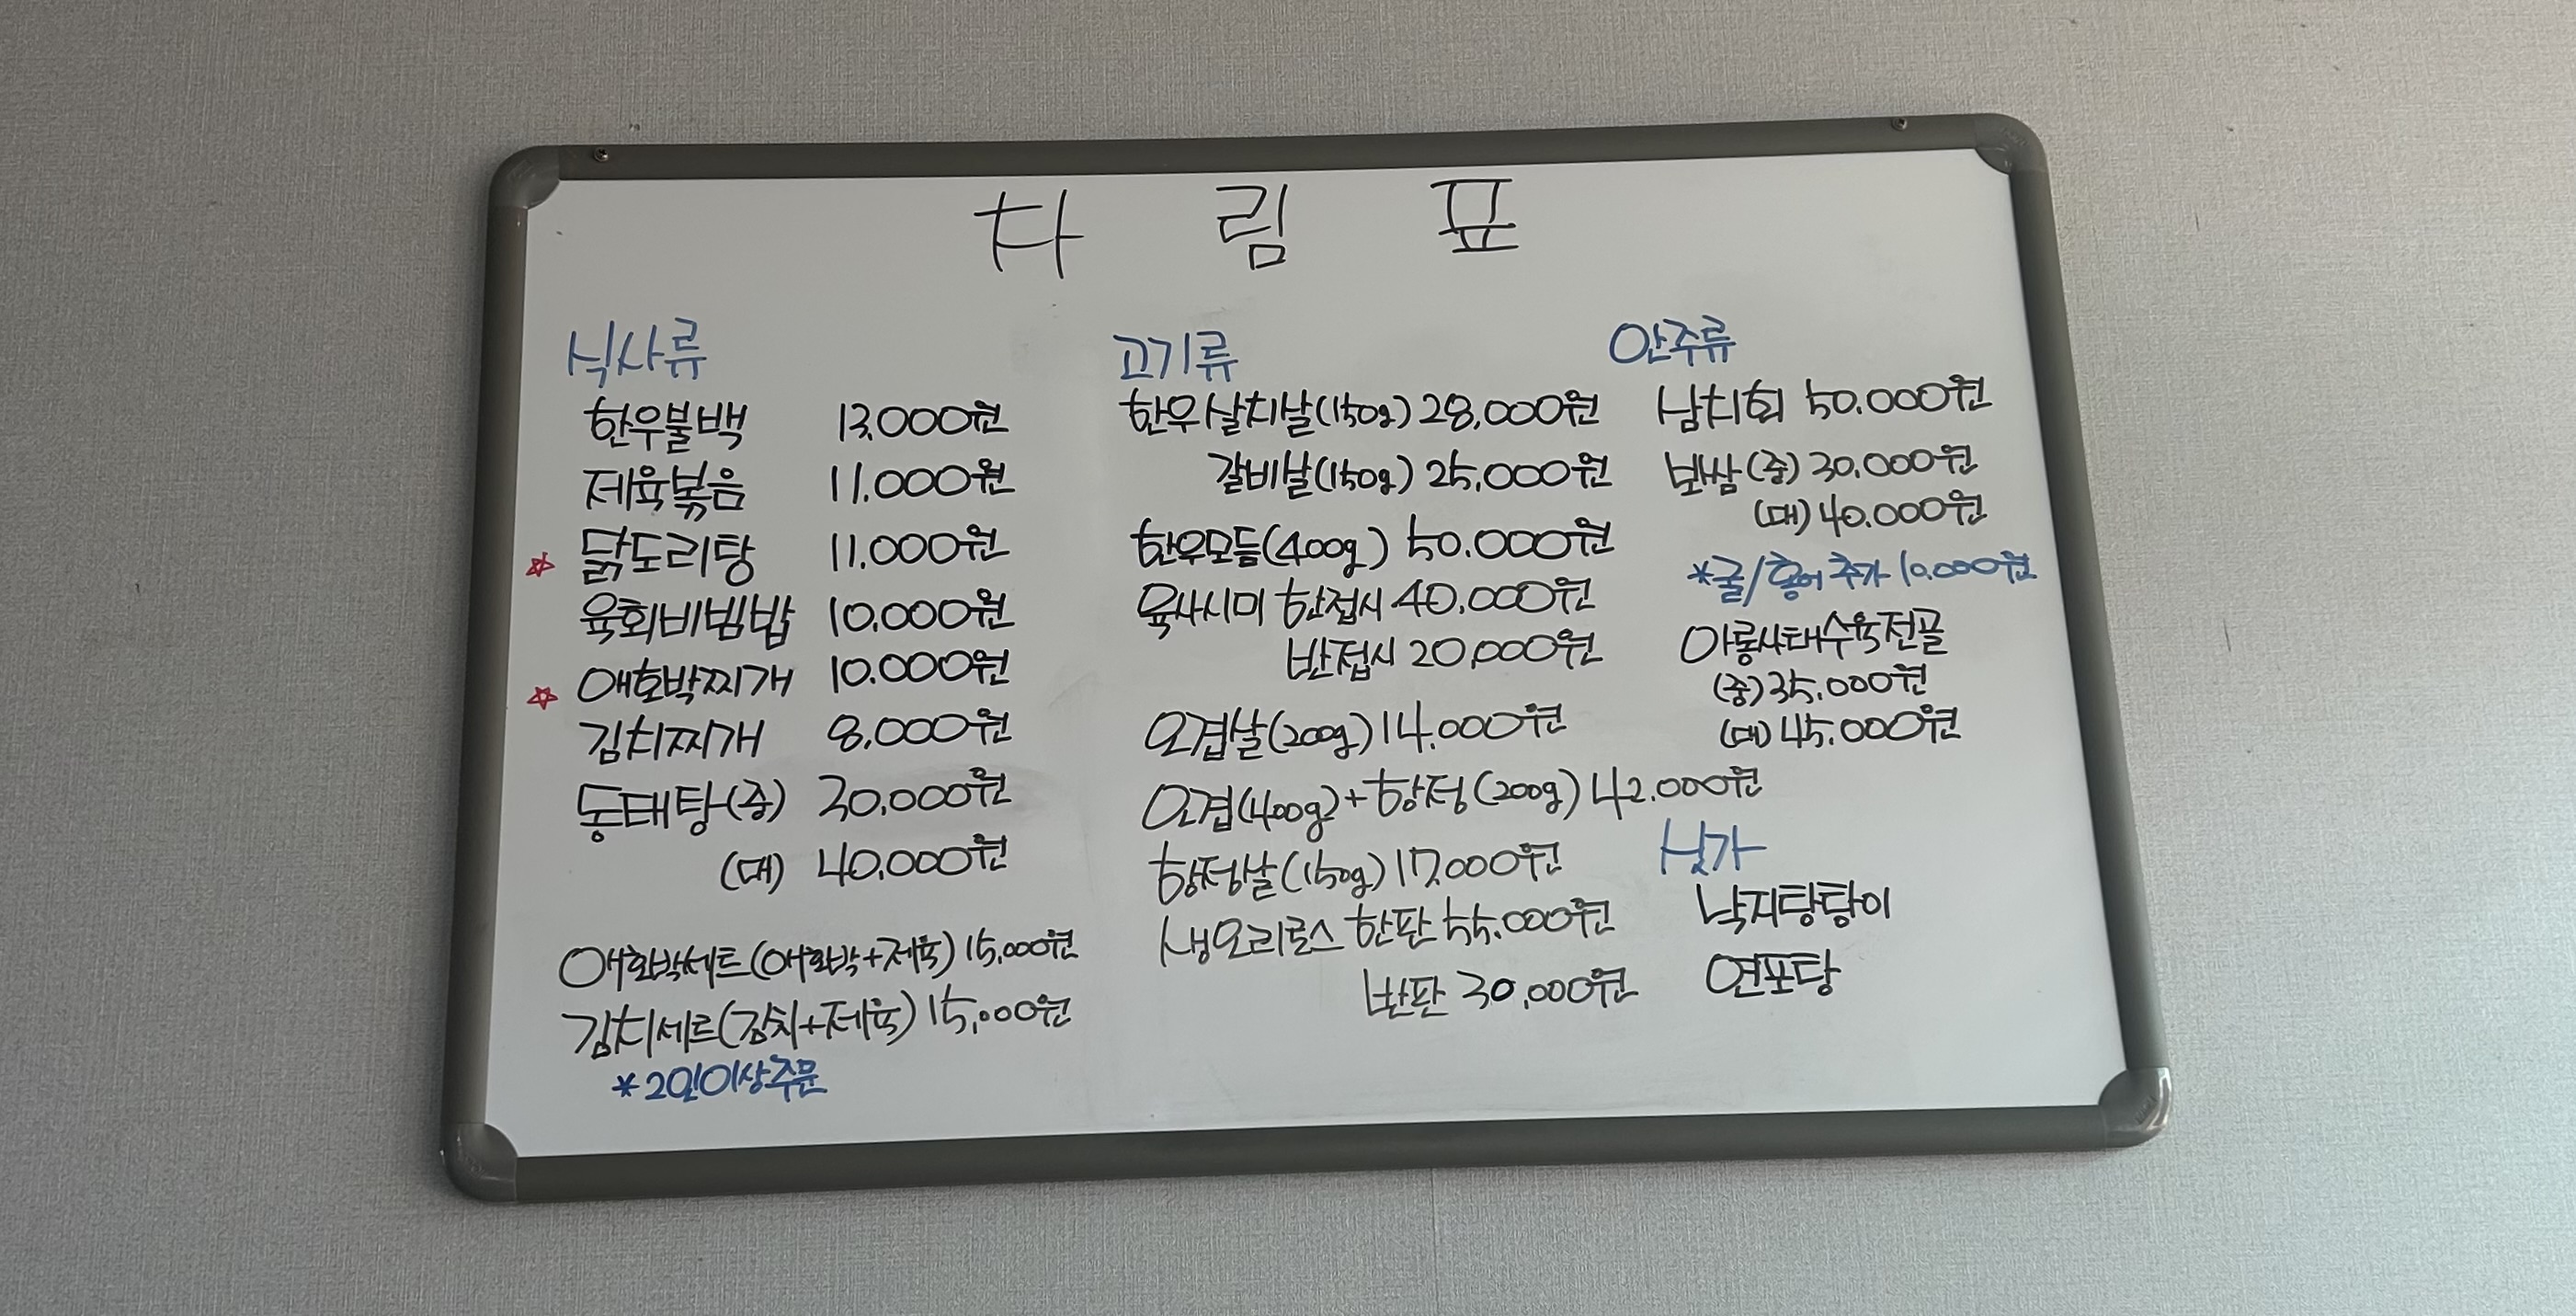 차림표
식사류
한우불백 13,000원
제육볶음 11,000원
☆ 닭도리탕 11,000원
육회비빔밥 10,000원
☆ 애호박찌개 10,000원
김치찌개 8,000원
동태탕(중) 30,000원
(대) 40,000원
애호박세트(애호박+제육) 15,000원
김치세트(김치+제육) 15,000원
*2인이상주문
고기류
한우살치살(150g) 28,000원
갈비살(150g) 25,000원
한우모듬(400g) 50.000원
육사시미 한접시 40,000원
반접시 20,000원
오겹살(200g) 14.000원
오겹(400g)+항정(200g) 42.000원
항정살(150g) 17,000원
생오리로스 한판 55.000원
반판 30,000원
안주류
삼치회 50.000원
보쌈(중) 30.000원
(대) 40.000원
*굴/홍어 추가 10.000원
아롱사태수육전골
(중) 35,000원
(대) 45,000원
싯가
낙지탕탕이
연포탕